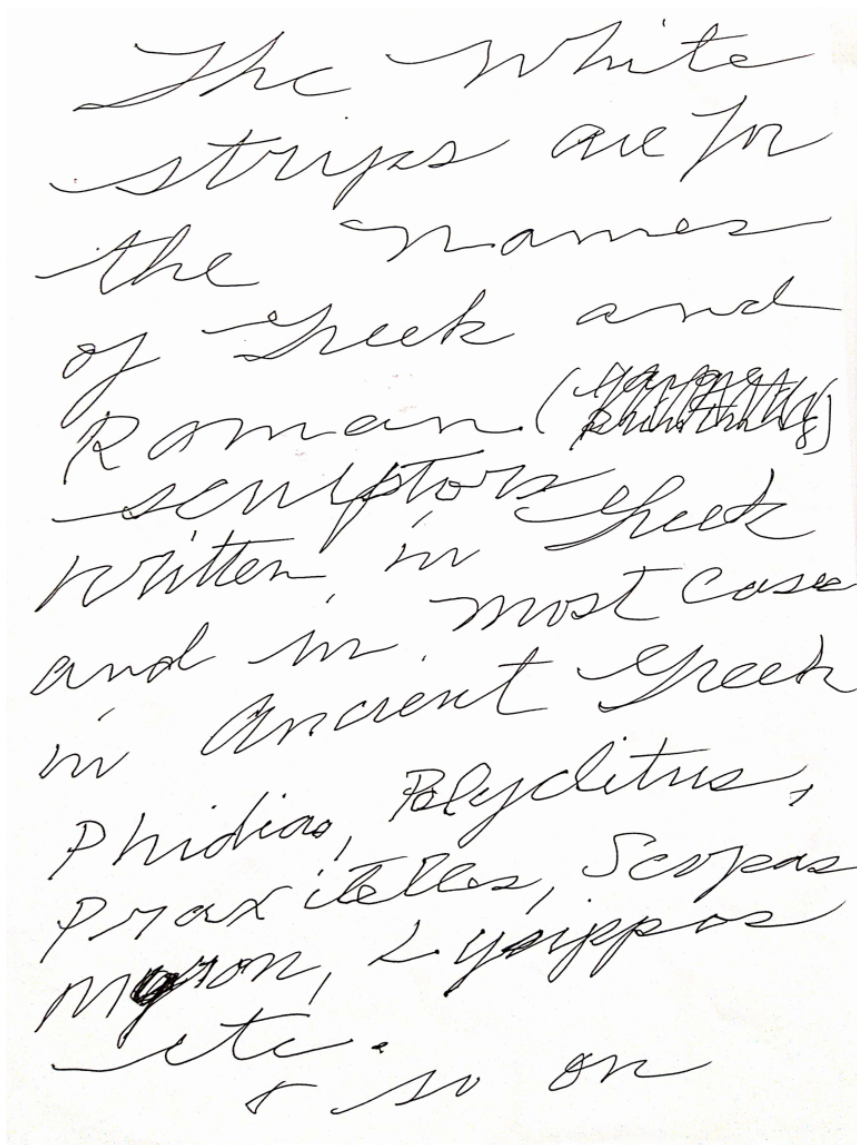 The White
strips are for
the names
of Greek and
Roman (
sculptors Greek
written in
and in most case
in Ancient Greek
Phidias, Polyclitus,
Praxitelles, Scopas
Myron, Lysippos
etc.
& so on